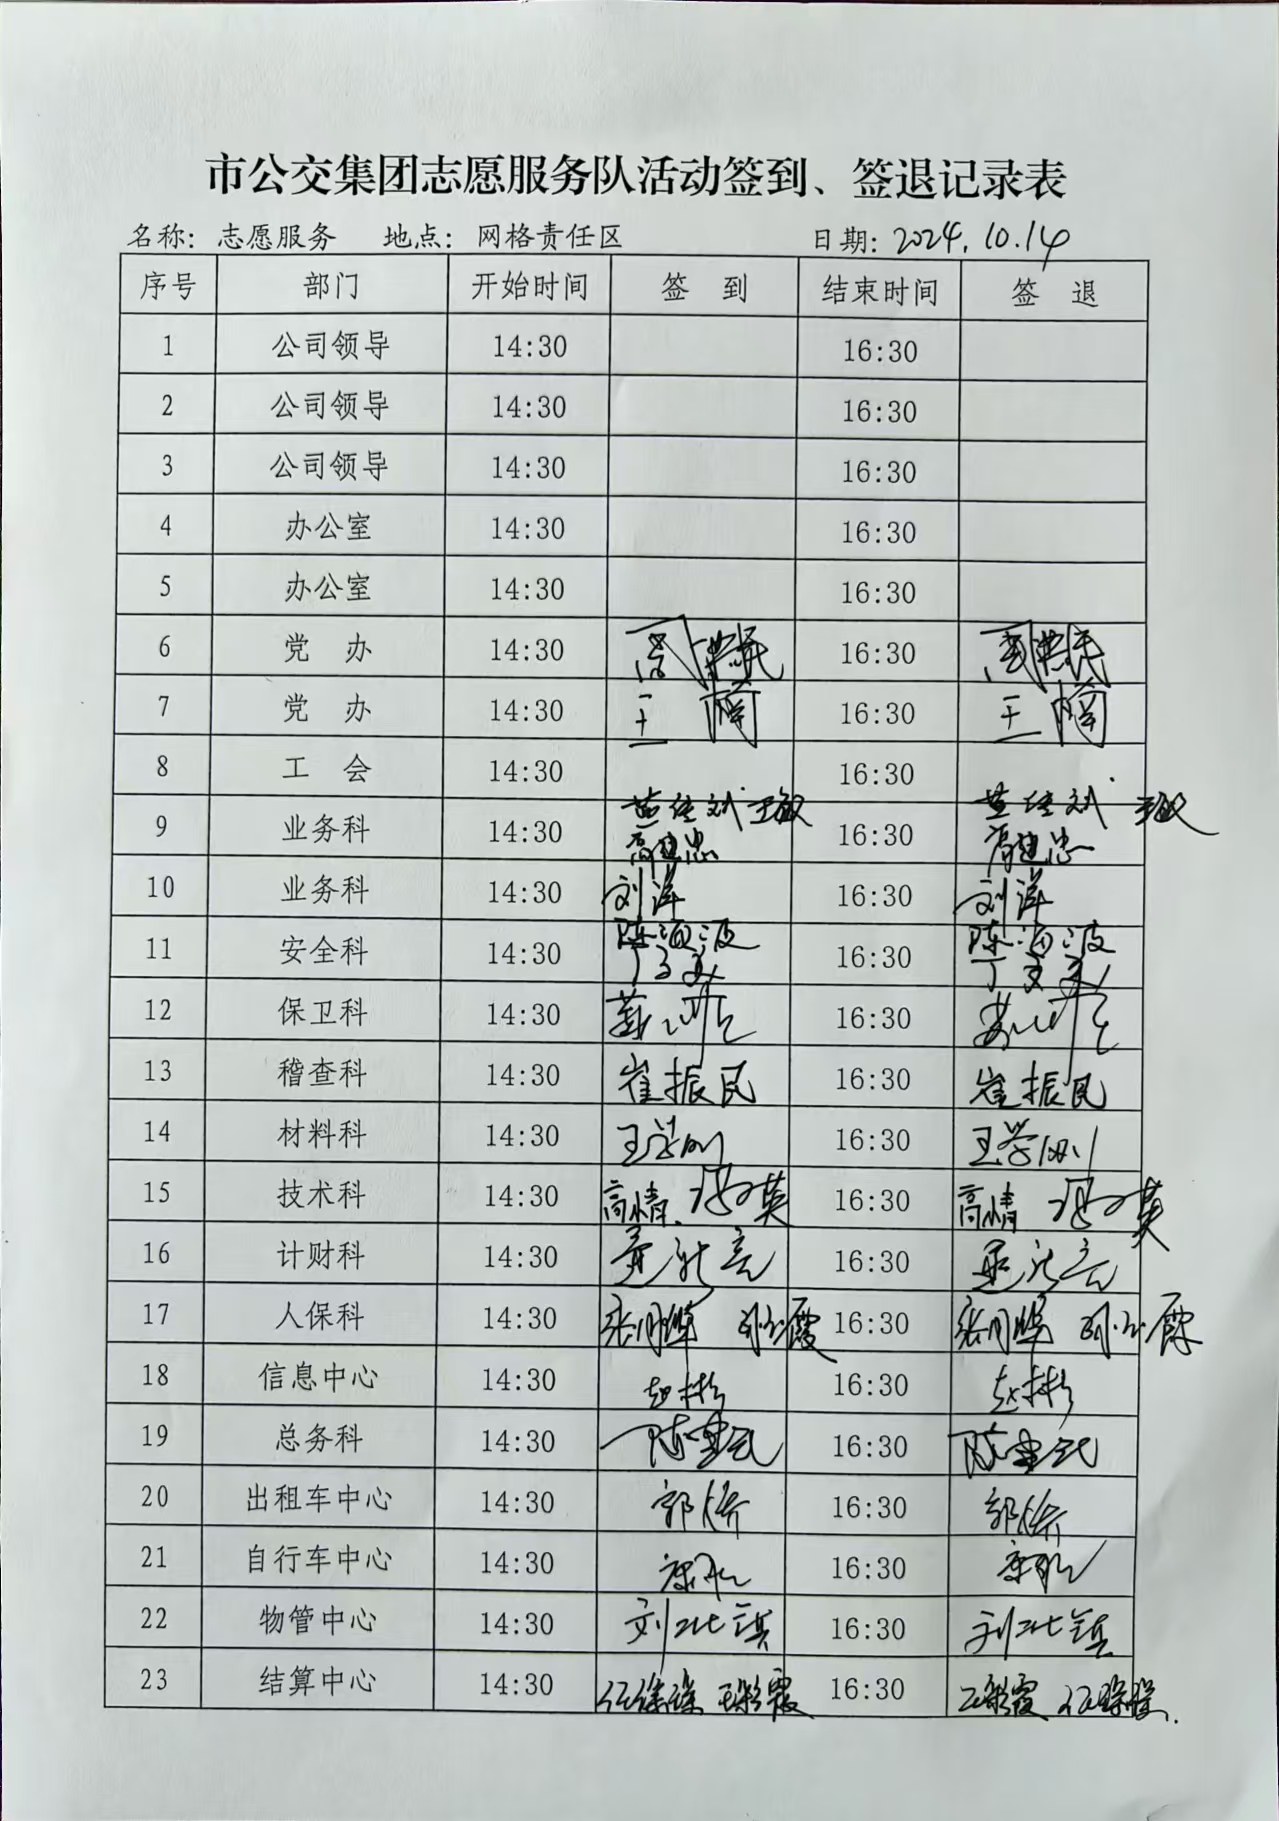 市公交集团志愿服务队活动签到、签退记录表
名称：志愿服务 地点：网格责任区 日期：2024.10.14
序号 部门 开始时间 签 到 结束时间 签 退
1 公司领导 14:30 16:30
2 公司领导 14:30 16:30
3 公司领导 14:30 16:30
4 办公室 14:30 16:30
5 办公室 14:30 16:30
6 党 办 14:30 16:30
7 党 办 14:30 王楠 16:30 王楠
8 工 会 14:30 16:30
9 业务科 14:30 王敏 16:30 王敏
10 业务科 14:30 刘洋 16:30 刘洋
11 安全科 14:30 陈海波 16:30 陈海波
12 保卫科 14:30 16:30
13 稽查科 14:30 崔振民 16:30 崔振民
14 材料科 14:30 王学刚 16:30 王学刚
15 技术科 14:30 高倩 16:30 高倩
16 计财科 14:30 16:30
17 人保科 14:30 16:30
18 信息中心 14:30 赵彬 16:30 赵彬
19 总务科 14:30 16:30
20 出租车中心 14:30 16:30
21 自行车中心 14:30 16:30
22 物管中心 14:30 16:30
23 结算中心 14:30 16:30